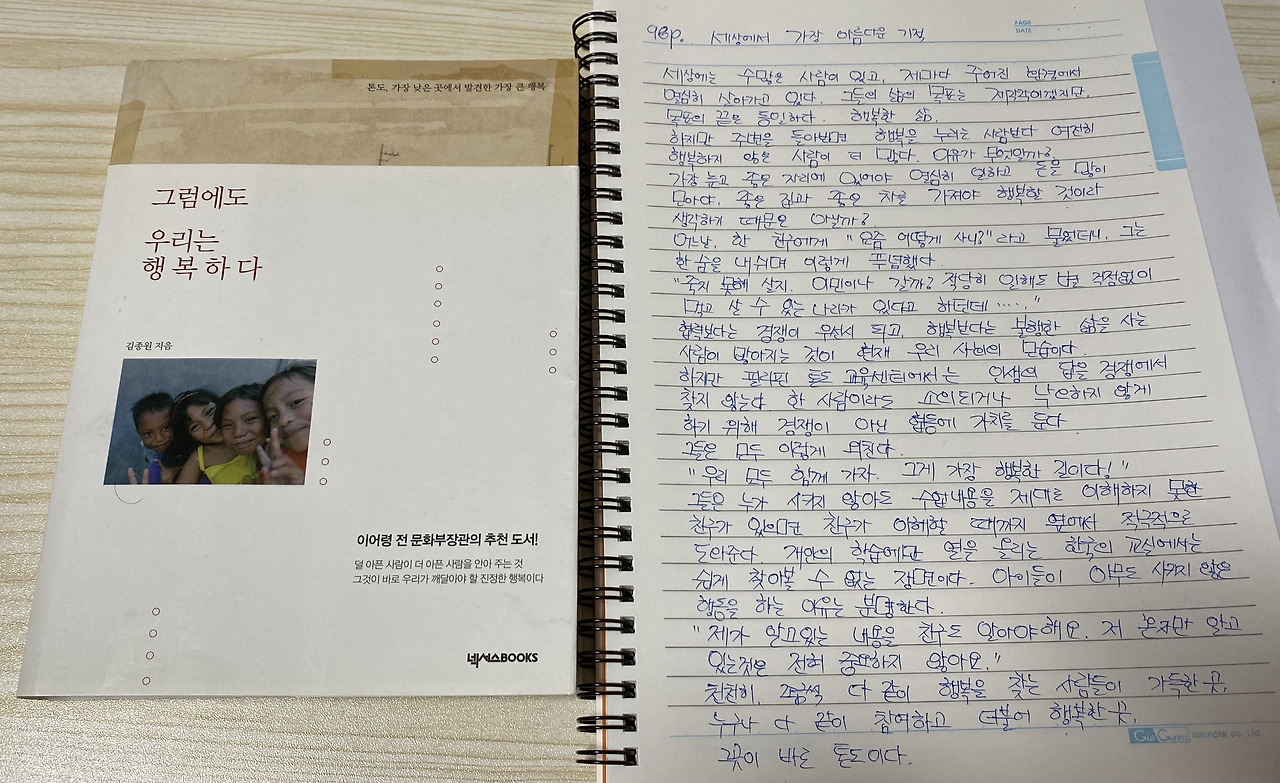 톤도, 가장 낮은 곳에서 발견한 가장 큰 행복
그럼에도
우리는
행복하다
김종원 지음
이어령 전 문화부장관의 추천 도서!
덜 아픈 사람이 더 아픈 사람을 안아 주는 것
그것이 바로 우리가 깨달아야 할 진정한 행복이다
넥서스BOOKS
PAGE
DATE
98p. 세상에서 가장 아름다운 기적
세상에는 수많은 사람이 있고, 제마다 주어진 환경에서
열심히 살아가고 있다. 그들의 삶의 목표는 제각각이겠지만,
목표의 끝은 동일하다. 행복한 삶.
하지만 주변을 돌아보면 행복을 누리는 사람보다 여전히
행복하지 않은 사람이 더 많다. 이유가 무엇일까?
가장 높고 좋은 자리에 있어야 열심히 일하고 돈을 많이
모아야, 좋은 집과 좋은 차를 가져야 행복할 것이라
생각하기 때문은 아닐까?
어느날, 한 친구에게 "요즘 어떻게 사니?"라고 물었더니, 그는
한숨을 내쉬며 이렇게 푸념했다.
"죽지 못해 살지. 이민이나 갈까? 적당히 일해도 별 걱정없이
먹고 살 수 있는 나라가 있다고 하던데……"
협력보다는 경쟁이 우선시 되고, 행복보다는 불행한 삶을 사는
사람이 많아지는 것이 현재 우리 사회의 모습이다.
하지만 필리핀 톤도 교육센터에서는 인생의 답을 경쟁에서
찾지 않는다. 한 사람이라도 소외되거나 낙오하지 않게
하기 위해 경쟁이 아닌 협동에 가치를 둔다.
그들은 모두 이렇게 외친다.
"우리 모두 함께 가자. 그게 가장 행복한 길이다!"
그들은 누가 시키지 않아도 수업내용을 제대로 이해하지 못한
친구가 있으면 친구가 이해할 때까지 옆에서 적극적으로
도와준다. 개인의 학습에만 열을 올리는 한국의 교실에서는
쉽게 찾아볼 수 없는 장면이다. 아이들이 아무도 시키지 않은
행동을 하는 이유는 분명하다.
"제가 알고있는 내용을 친구도 알아야해요. 저 혼자만 알고
있는것은 전혀 중요하지 않아요."
천천히, 조금씩 다 같이 행복을 찾는 사람들이 가득한 곳,
누구나 다 같이 참여하고 더불어 행복한 곳,
그곳이 바로 톤도이다.
Gui Gumi ilsinnote co Ltd.